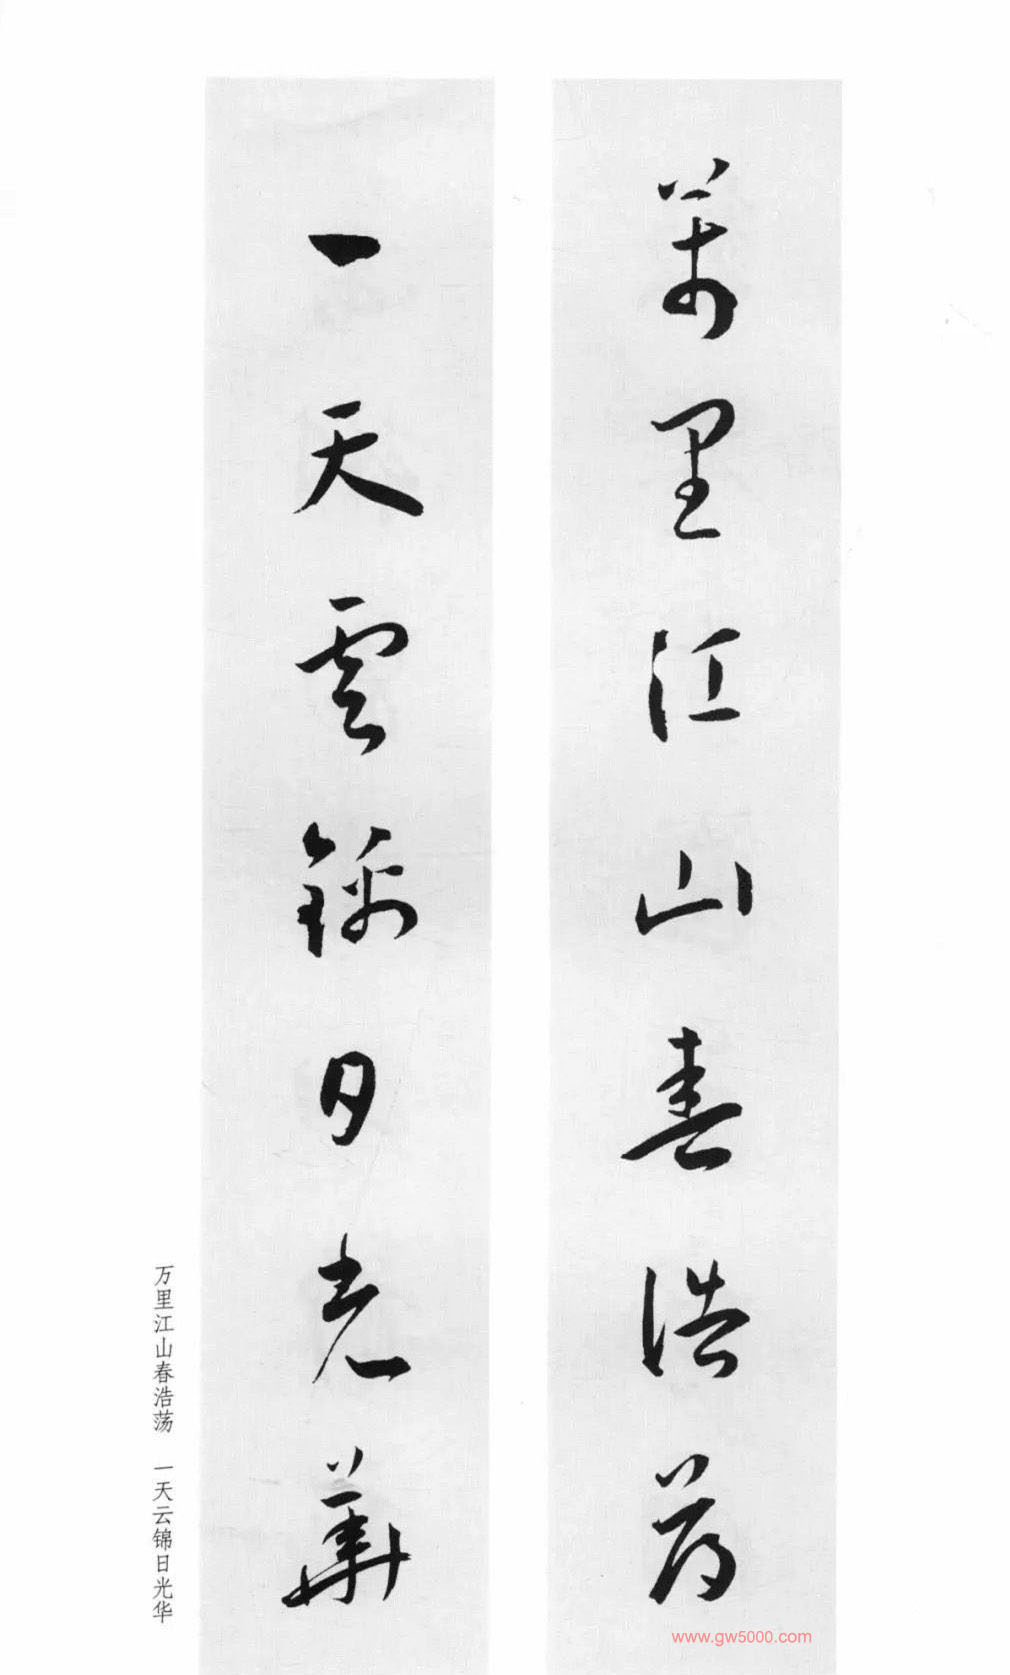 萬里江山春浩蕩
一天雲錦日光華
万里江山春浩荡 一天云锦日光华
www.gw5000.com